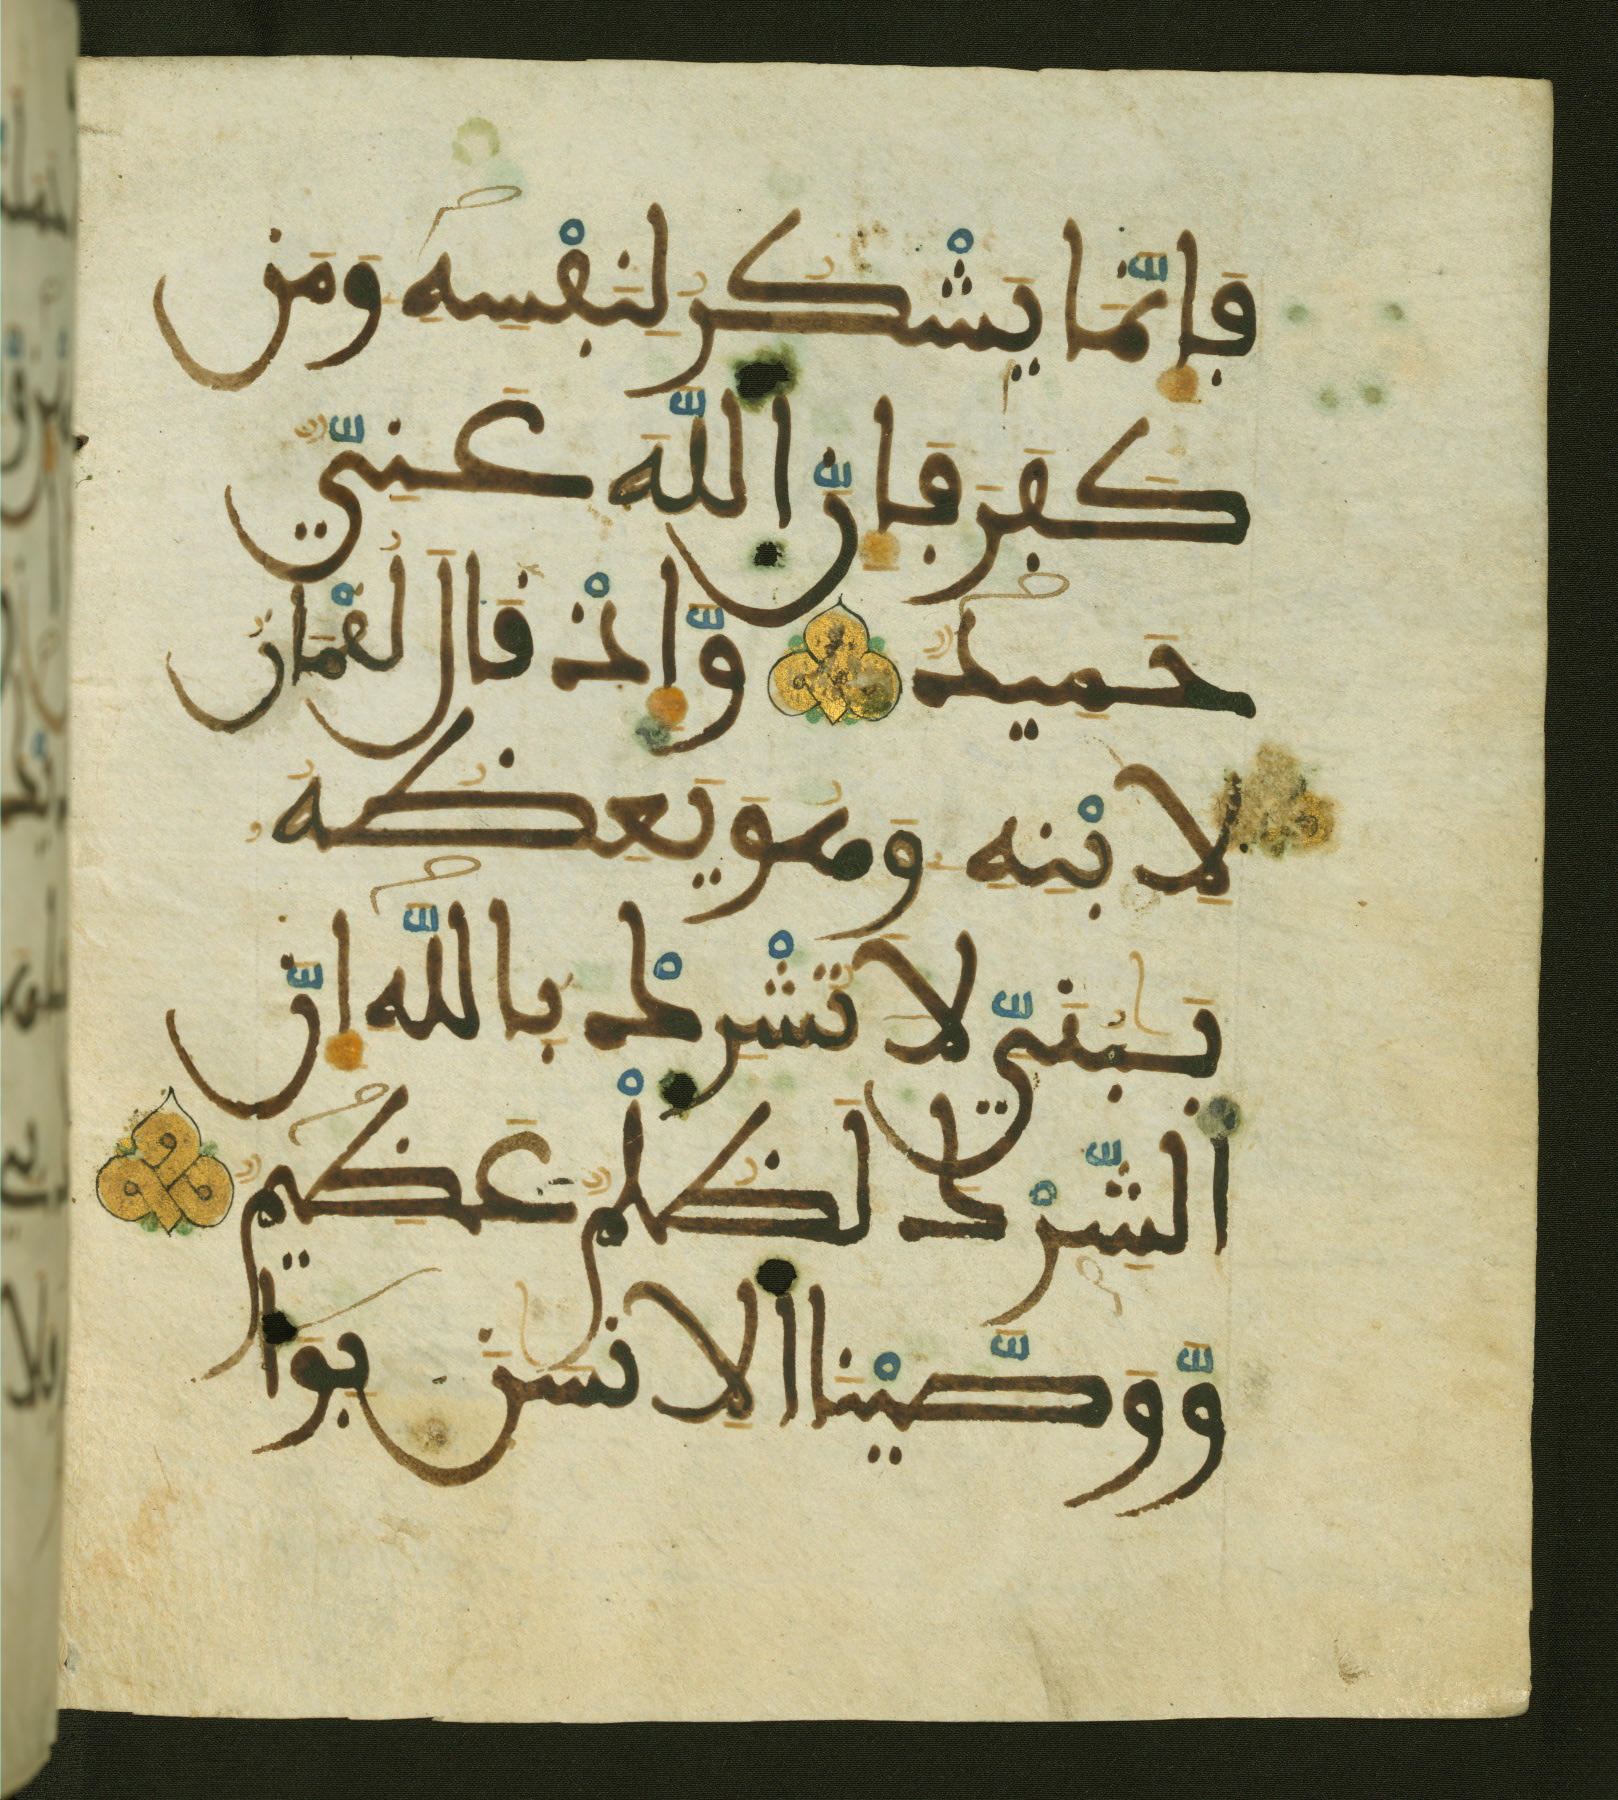 فَإِنَّمَا يَشْكُرُ لِنَفْسِهِ وَمَن
كَفَرَ فَإِنَّ اللَّهَ غَنِيٌّ
حَمِيدٌ وَّإِذْ قَالَ لُقْمَانُ
لِابْنِهِ وَهُوَ يَعِظُهُ
يَبُنَيِّ لَا تُشْرِكْ بِاللَّهِ إِنَّ
الشِّرْكَ لَظُلْمٌ عَظِيمٌ
وَّوَصَّيْنَا الْإِنسَنَ بِوَا